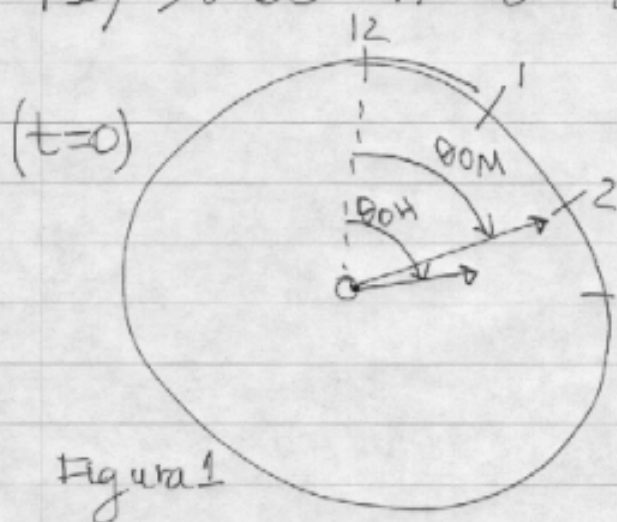 12
1
(t=0)
θOM
2
θOH
Figura 1